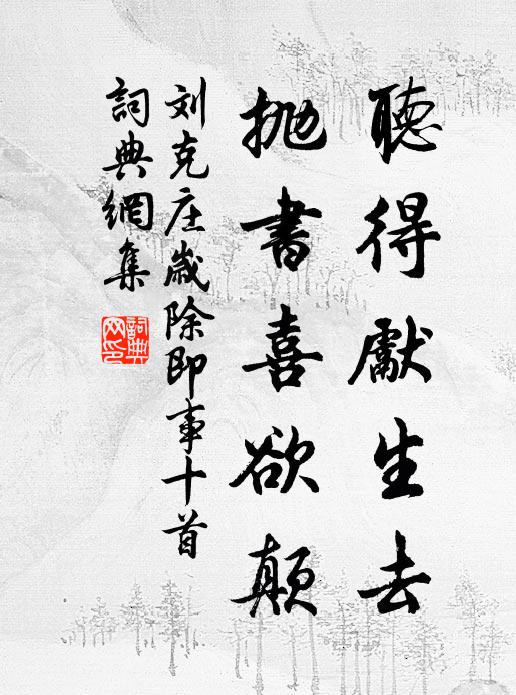 聽得獻生去
抛書喜欲顛
刘克庄歲除即事十首
詞典網集
詞典网印